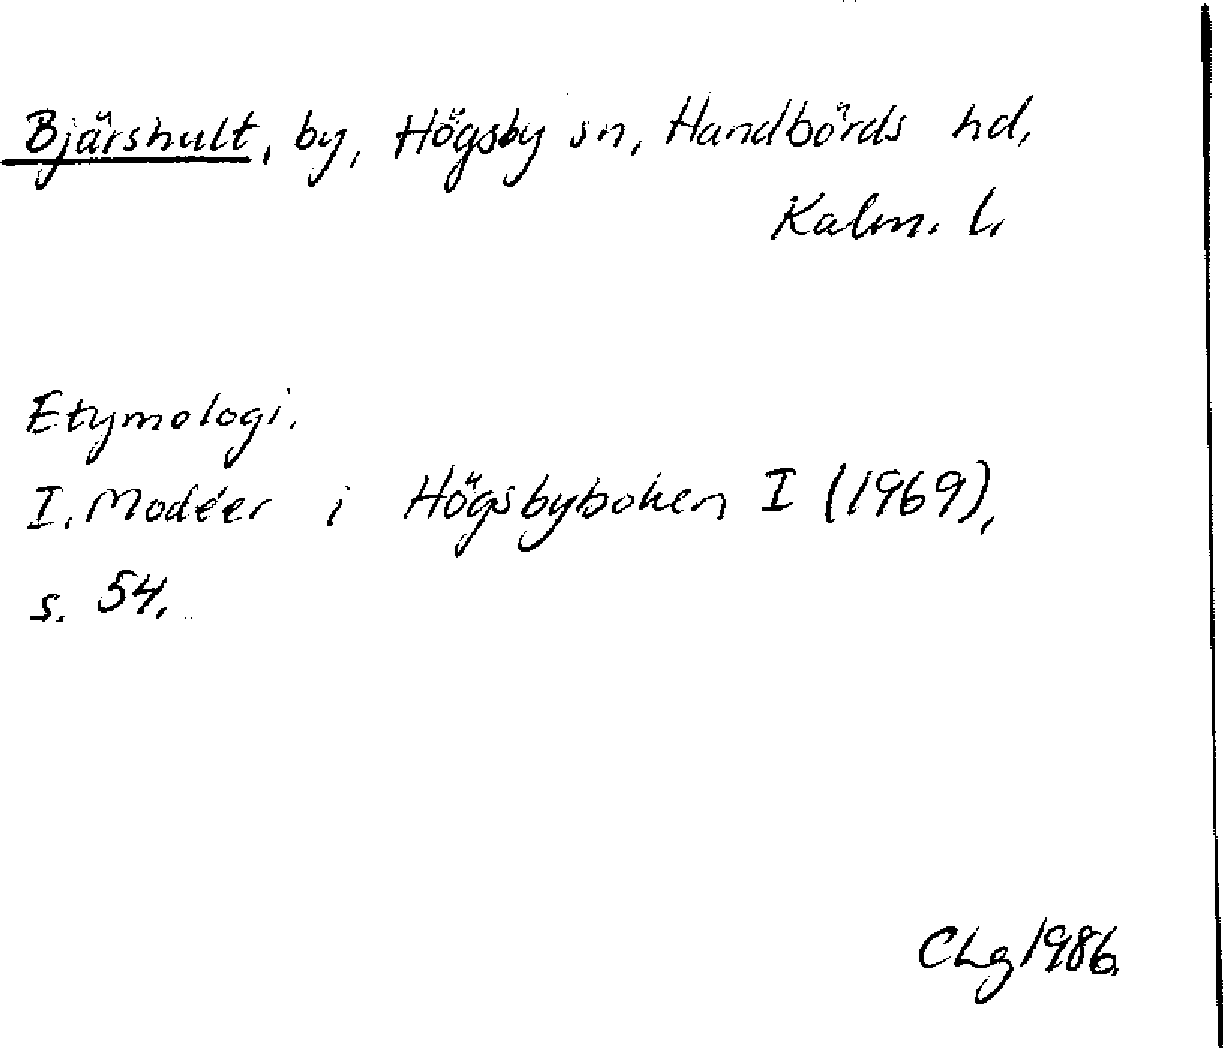 Bjärshult, by, Högsby sn, Handbörds hd,
Kalm. l.
Etymologi.
I. Modéer i Högsbyboken I (1969),
s. 54.
CLg 1986